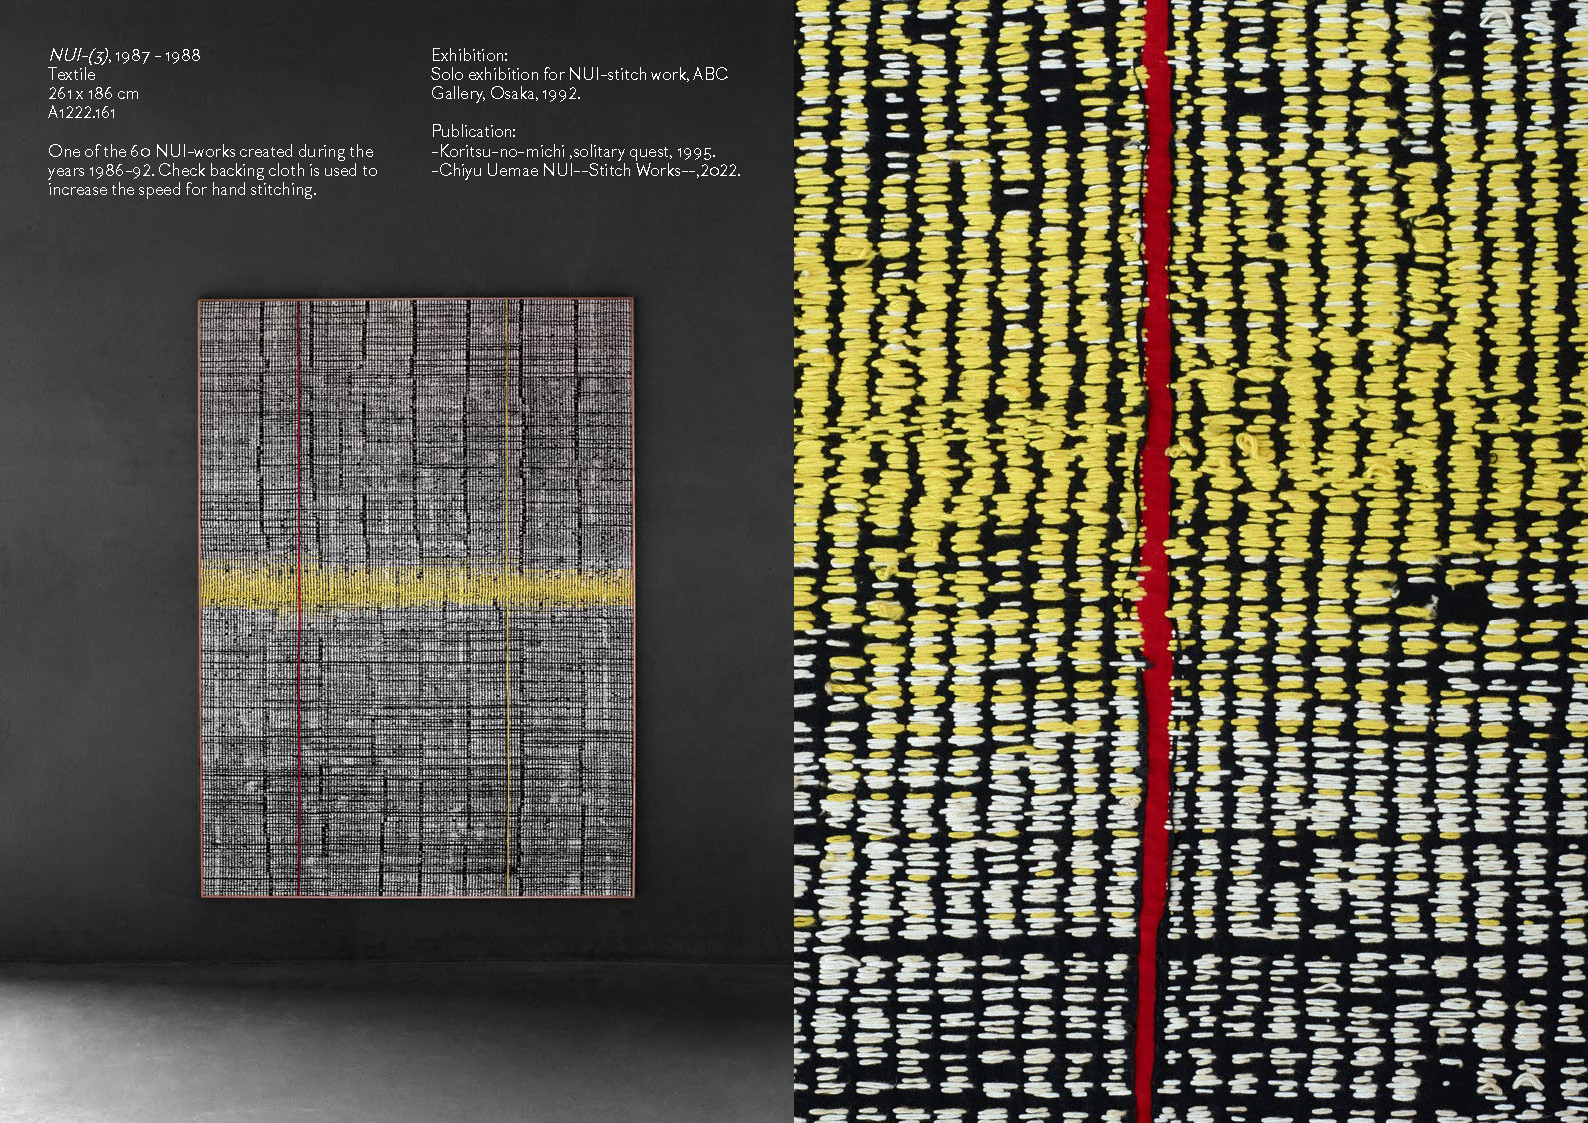 NUI-(3), 1987 - 1988
Textile
261 x 186 cm
A1222.161
One of the 60 NUI-works created during the
years 1986-92. Check backing cloth is used to
increase the speed for hand stitching.
Exhibition:
Solo exhibition for NUI-stitch work, ABC
Gallery, Osaka, 1992.
Publication:
-Koritsu-no-michi ,solitary quest, 1995.
-Chiyu Uemae NUI--Stitch Works--,2022.